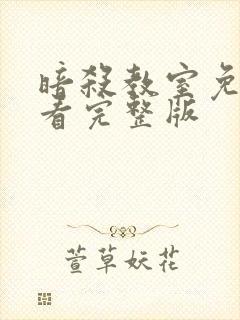 暗殺教室免
看完整版
萱草妖花